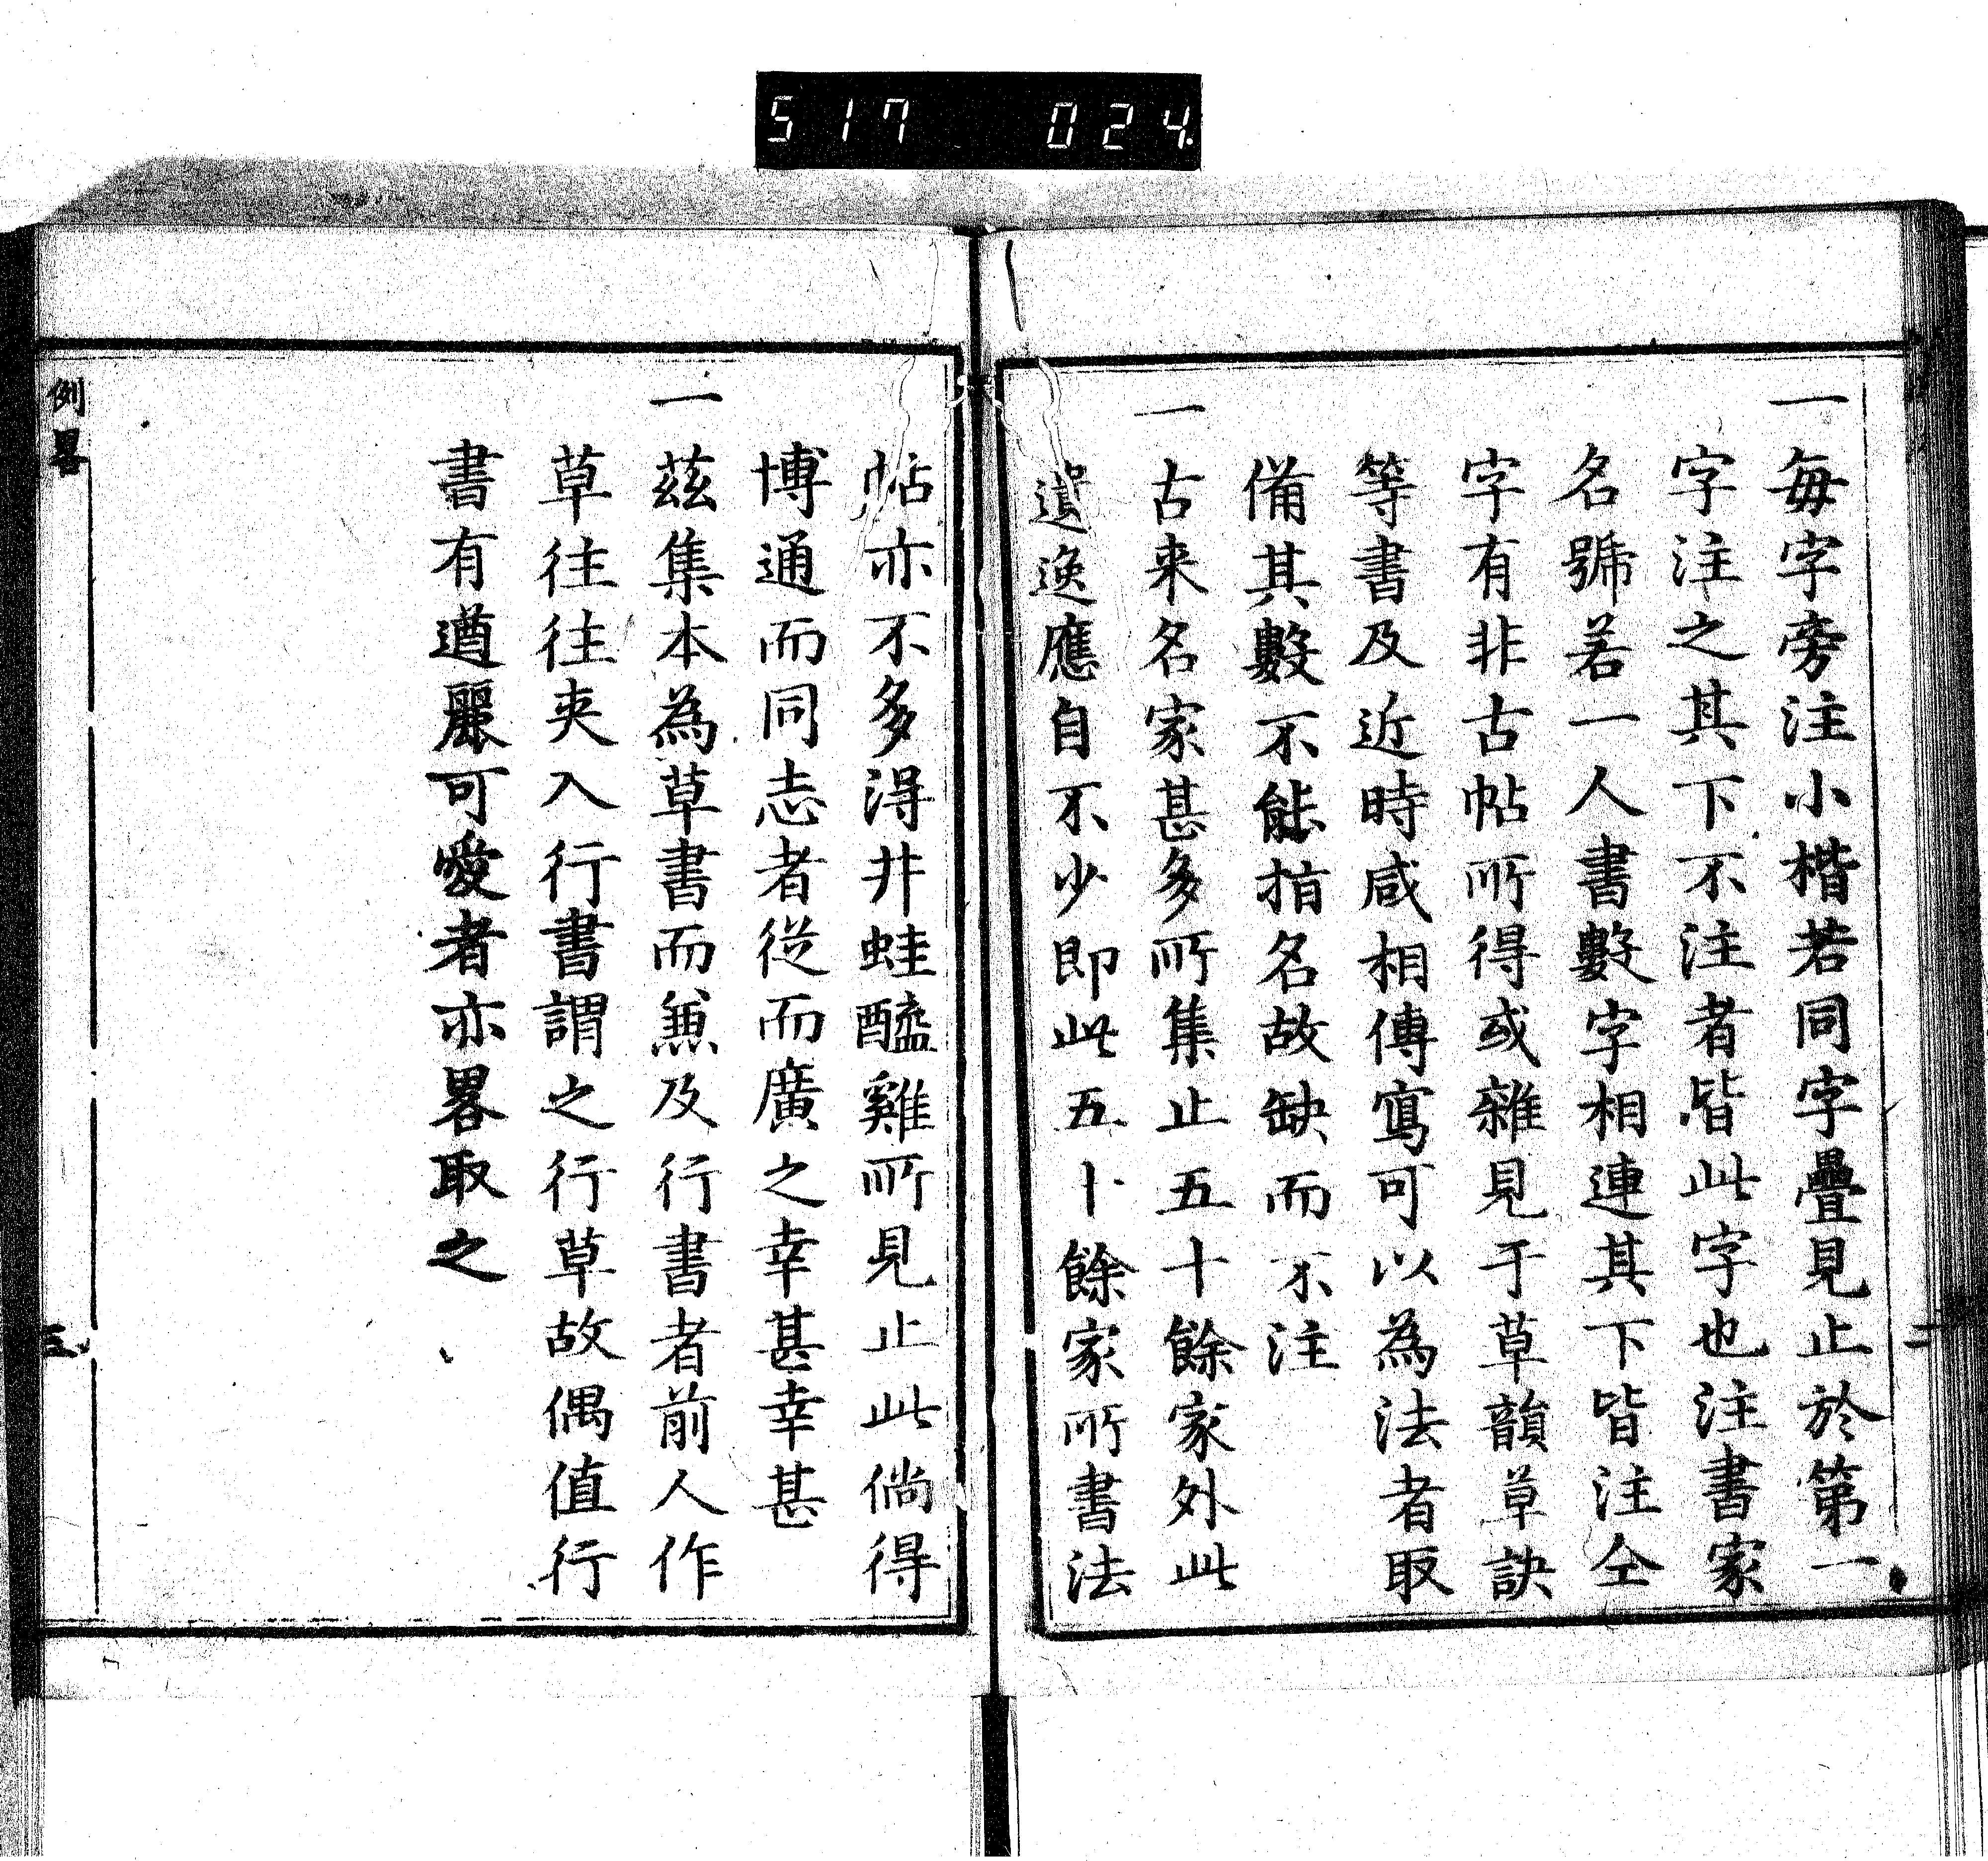 517 024
一每字旁注小楷若同字疊見止於第一
字注之其下不注者皆此字也注書家
名號若一人書數字相連其下皆注仝
字有非古帖所得或雜見于草韻草訣
等書及近時咸相傳寫可以為法者取
備其數不能指名故缺而不注
一古来名家甚多所集止五十餘家外此
遺逸應自不少即此五十餘家所書法
帖亦不多得井蛙醯雞所見止此倘得
博通而同志者從而廣之幸甚幸甚
一茲集本為草書而兼及行書者前人作
草往往夾入行書謂之行草故偶值行
書有遒麗可愛者亦畧取之
例畧
三